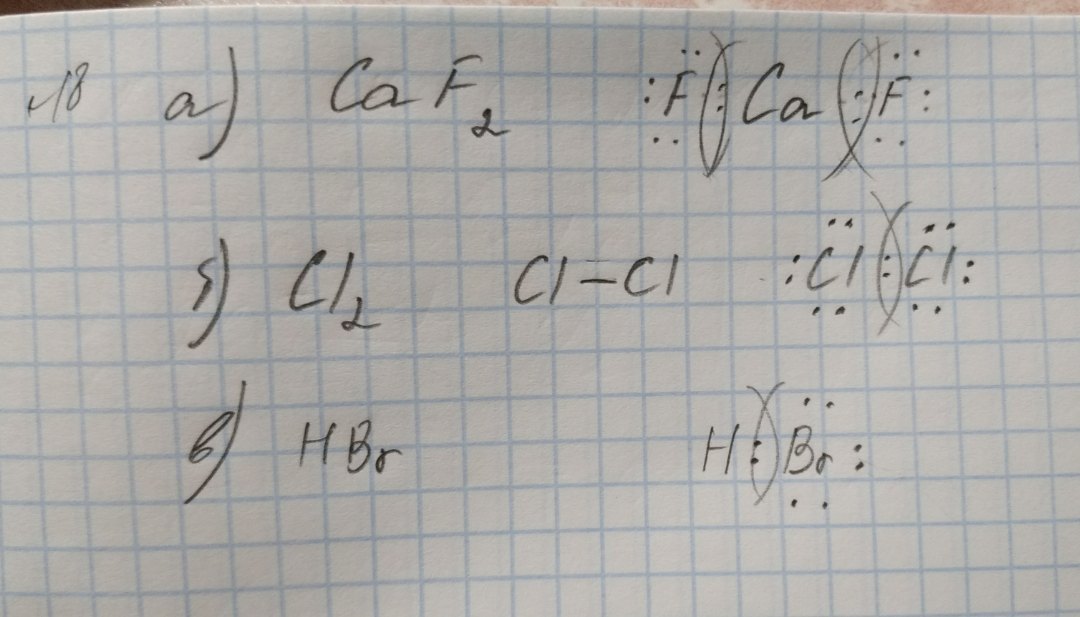 №18 а) CaF₂ :F̤̈(:)Ca(:)F̤̈:
б) Cl₂ Cl–Cl :C̤̈l(:)C̤̈l:
в) HBr H(:)B̤̈r: